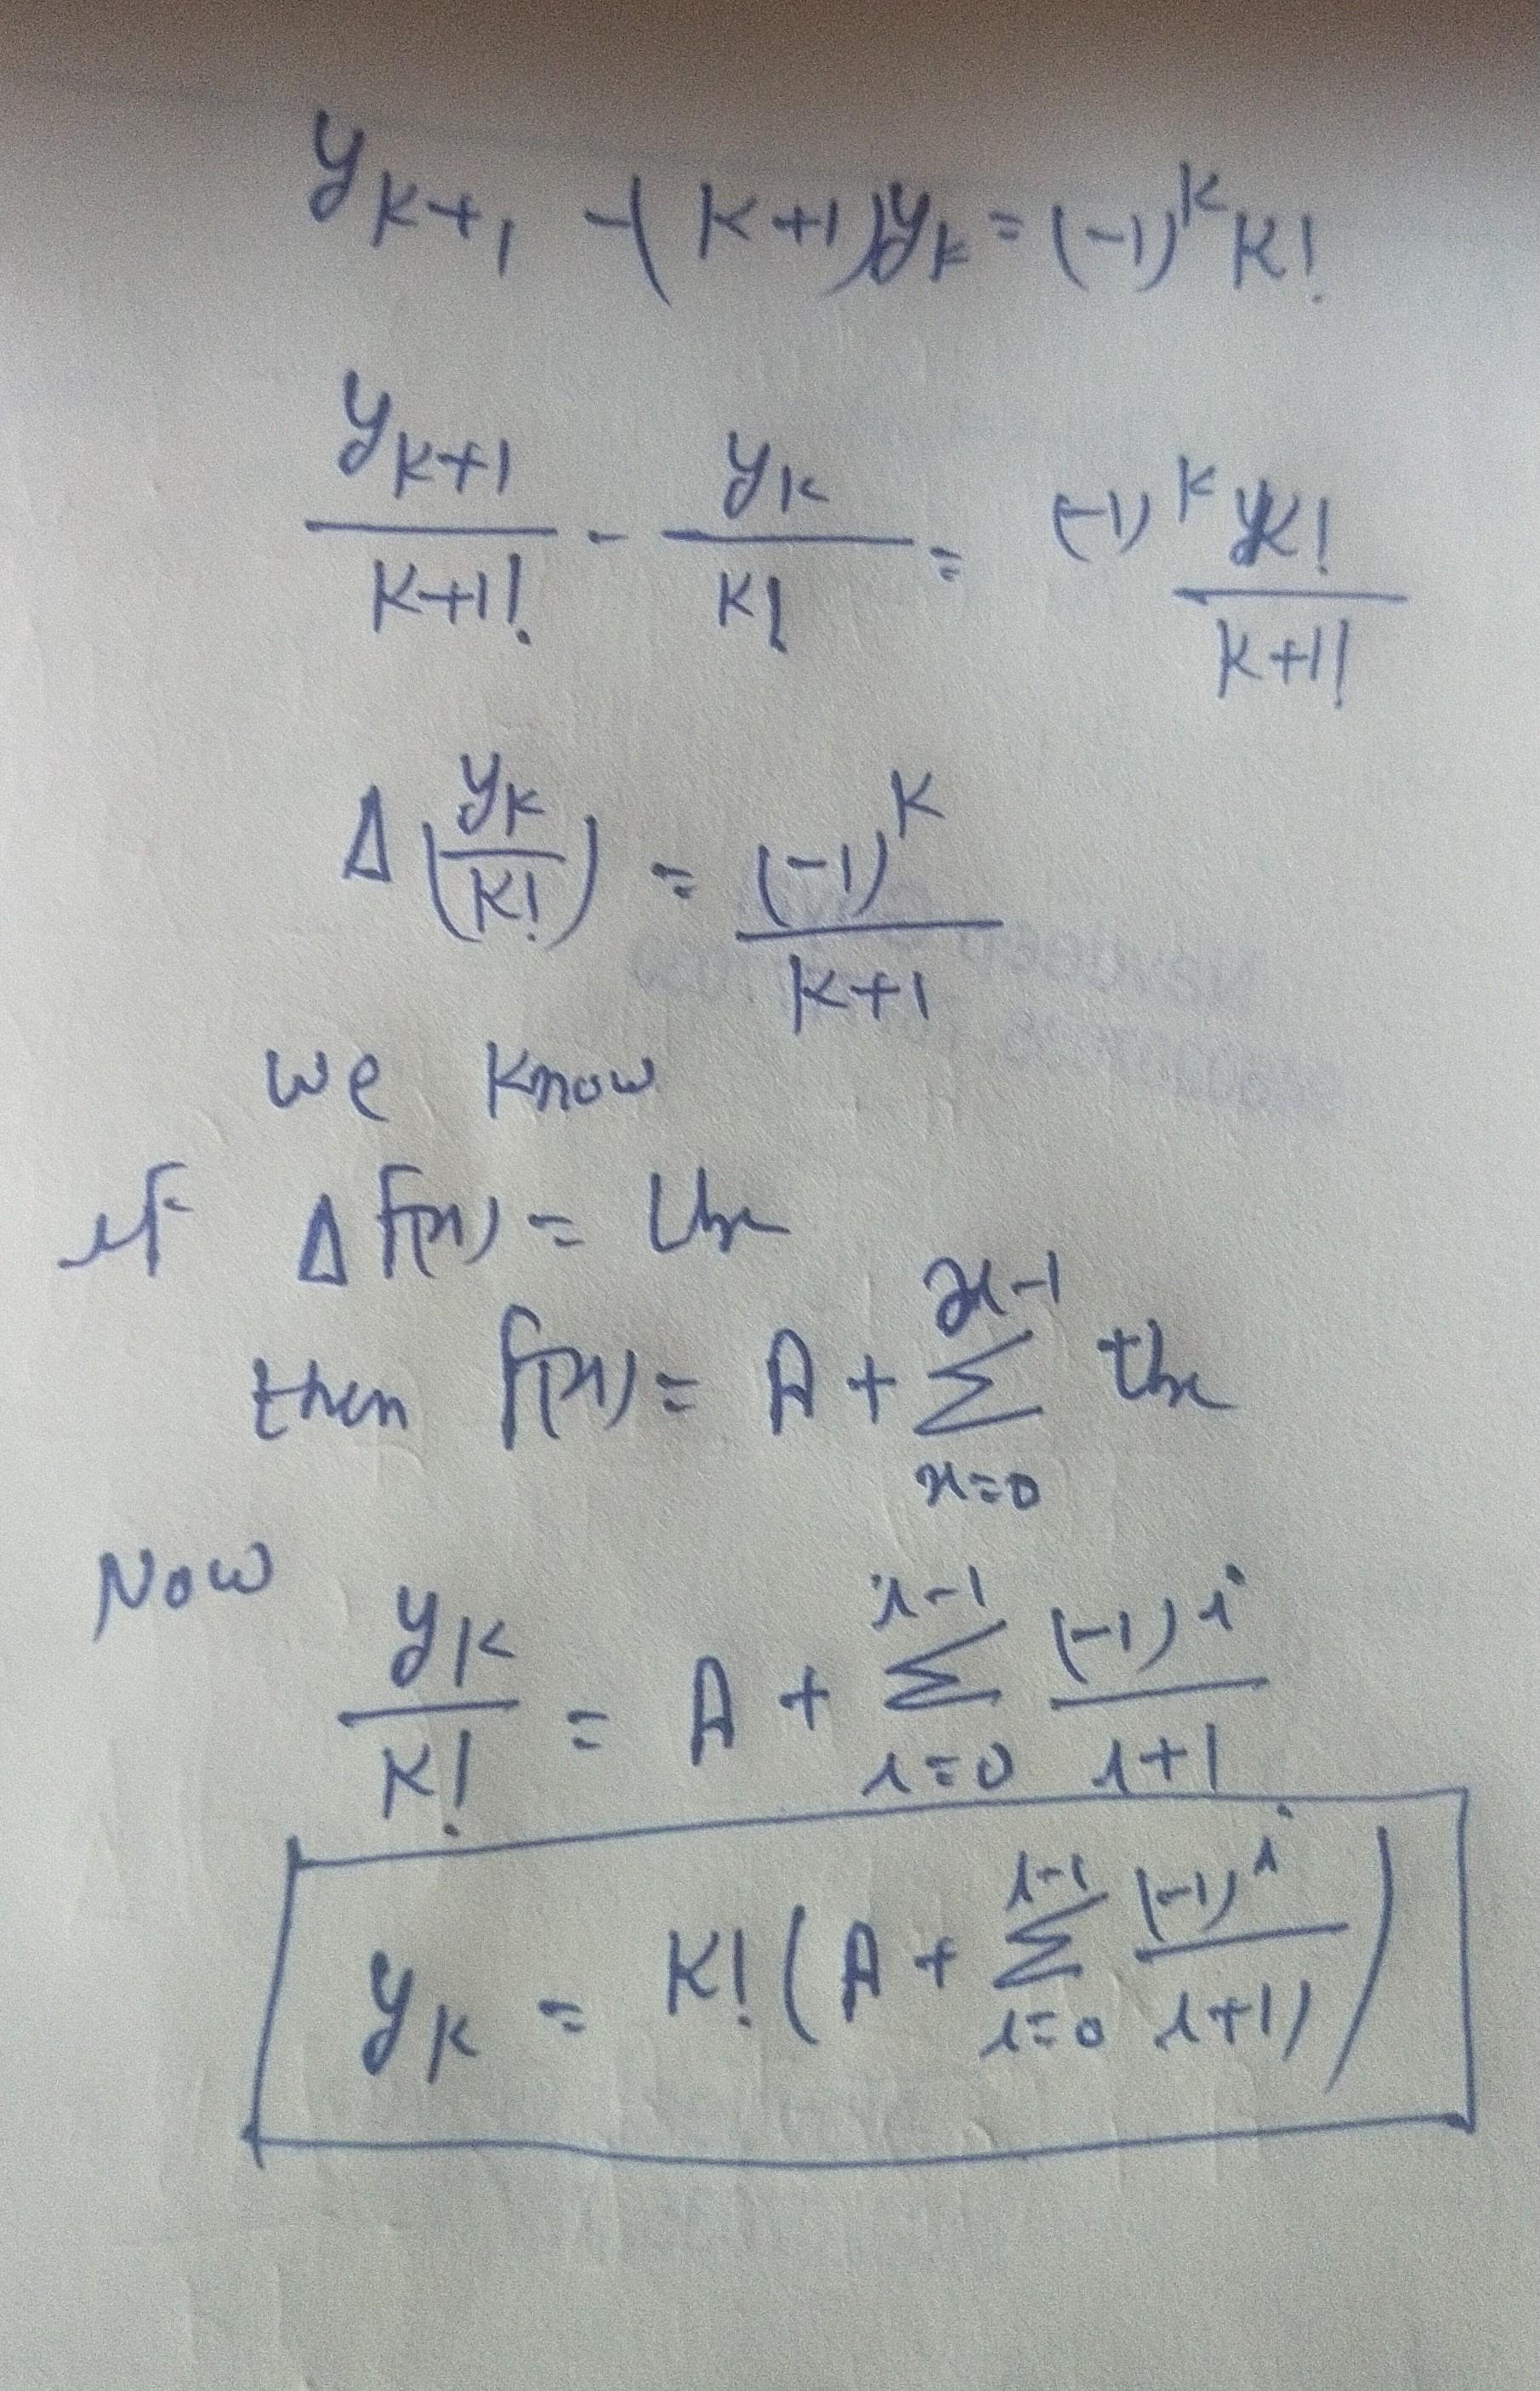 y_{k+1} - (k+1)y_k = (-1)^k k!
y_{k+1}/k+1! - y_k/k! = (-1)^k k!/k+1!
Δ(y_k/k!) = (-1)^k/k+1
we know
if Δf(x) =
then f(x) = A + Σ_{x=0}^{x-1}
Now y_k/k! = A + Σ_{i=0}^{i-1} (-1)^i/i+1
y_k = k!(A + Σ_{i=0}^{i-1} (-1)^i/i+1))